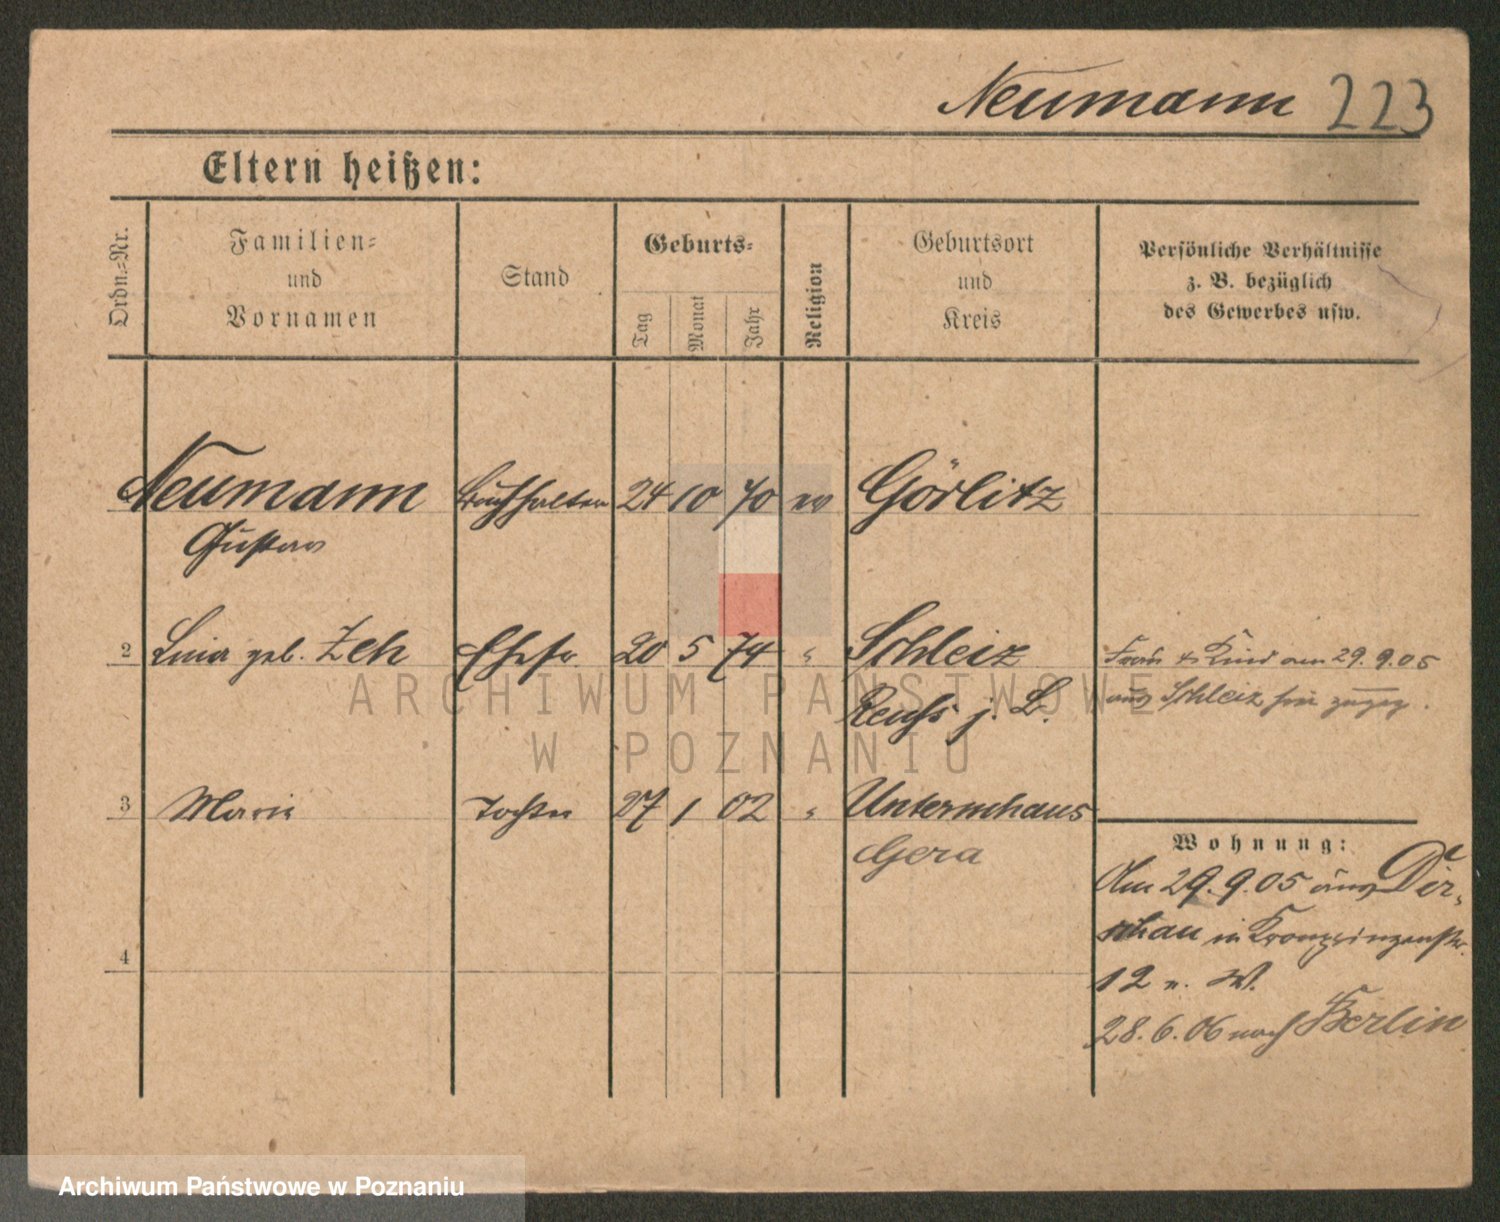 Neumann 223
Eltern heißen:
Ordn.=Nr.
Familien=
und
Vornamen
Stand
Geburts=
Tag
Monat
Jahr
Religion
Geburtsort
und
Kreis
Persönliche Verhältnisse
z. B. bezüglich
des Gewerbes usw.
Neumann Buchhalter 24 10 70 ev Görlitz
Gustav
2 Lina geb. Zeh Ehefr. 20 5 74 " Schleiz
Reuß j. L.
Frau & Kind am 29.9.05
aus Schleiz hier zugez.
3 Marie Tochter 27 1 02 " Untermhaus
Gera
Wohnung:
Am 29.9.05 aus Dir-
schau in Kronprinzenstr.
12 n. W.
28.6.06 nach Berlin
4
ARCHIWUM PAŃSTWOWE
W POZNANIU
Archiwum Państwowe w Poznaniu